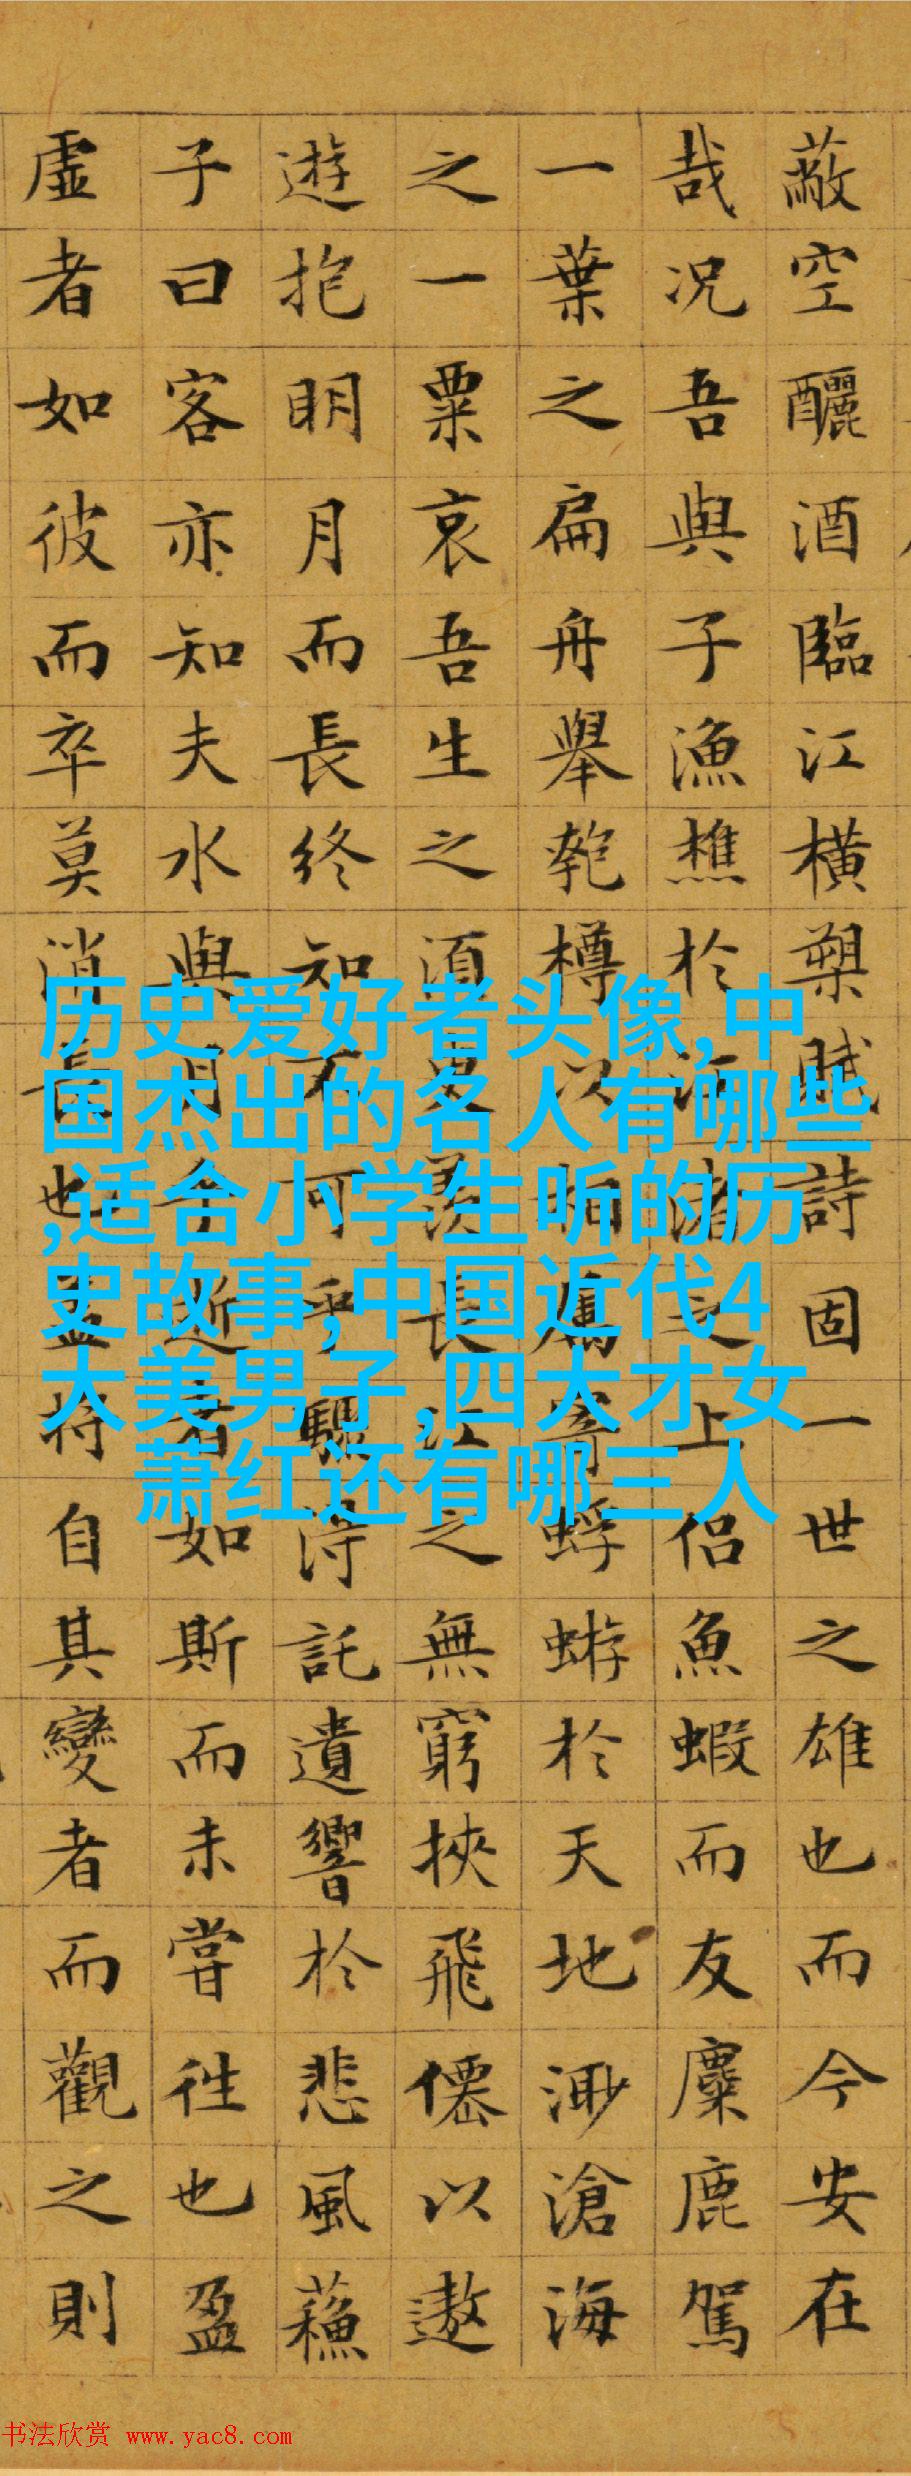 蔽空釃酒臨江橫槊賦詩固一世之雄也而今安在
哉况吾與子漁樵於江渚之上侶魚蝦而友麋鹿駕
一葉之扁舟舉匏樽以相屬寄蜉蝣於天地渺滄海
之一粟哀吾生之須臾羨長江之無窮挾飛僊以遨
遊抱明月而長終知不可乎驟得託遺響於悲風蘇
子曰客亦知夫水與月乎逝者如斯而未嘗往也盈
虛者如彼而卒莫消長也蓋將自其變者而觀之則
历史爱好者头像,中
国杰出的名人有哪些
,适合小学生听的历
史故事,中国近代4
大美男子,四大才女
萧红还有哪三人
书法欣赏 www.yac8.com